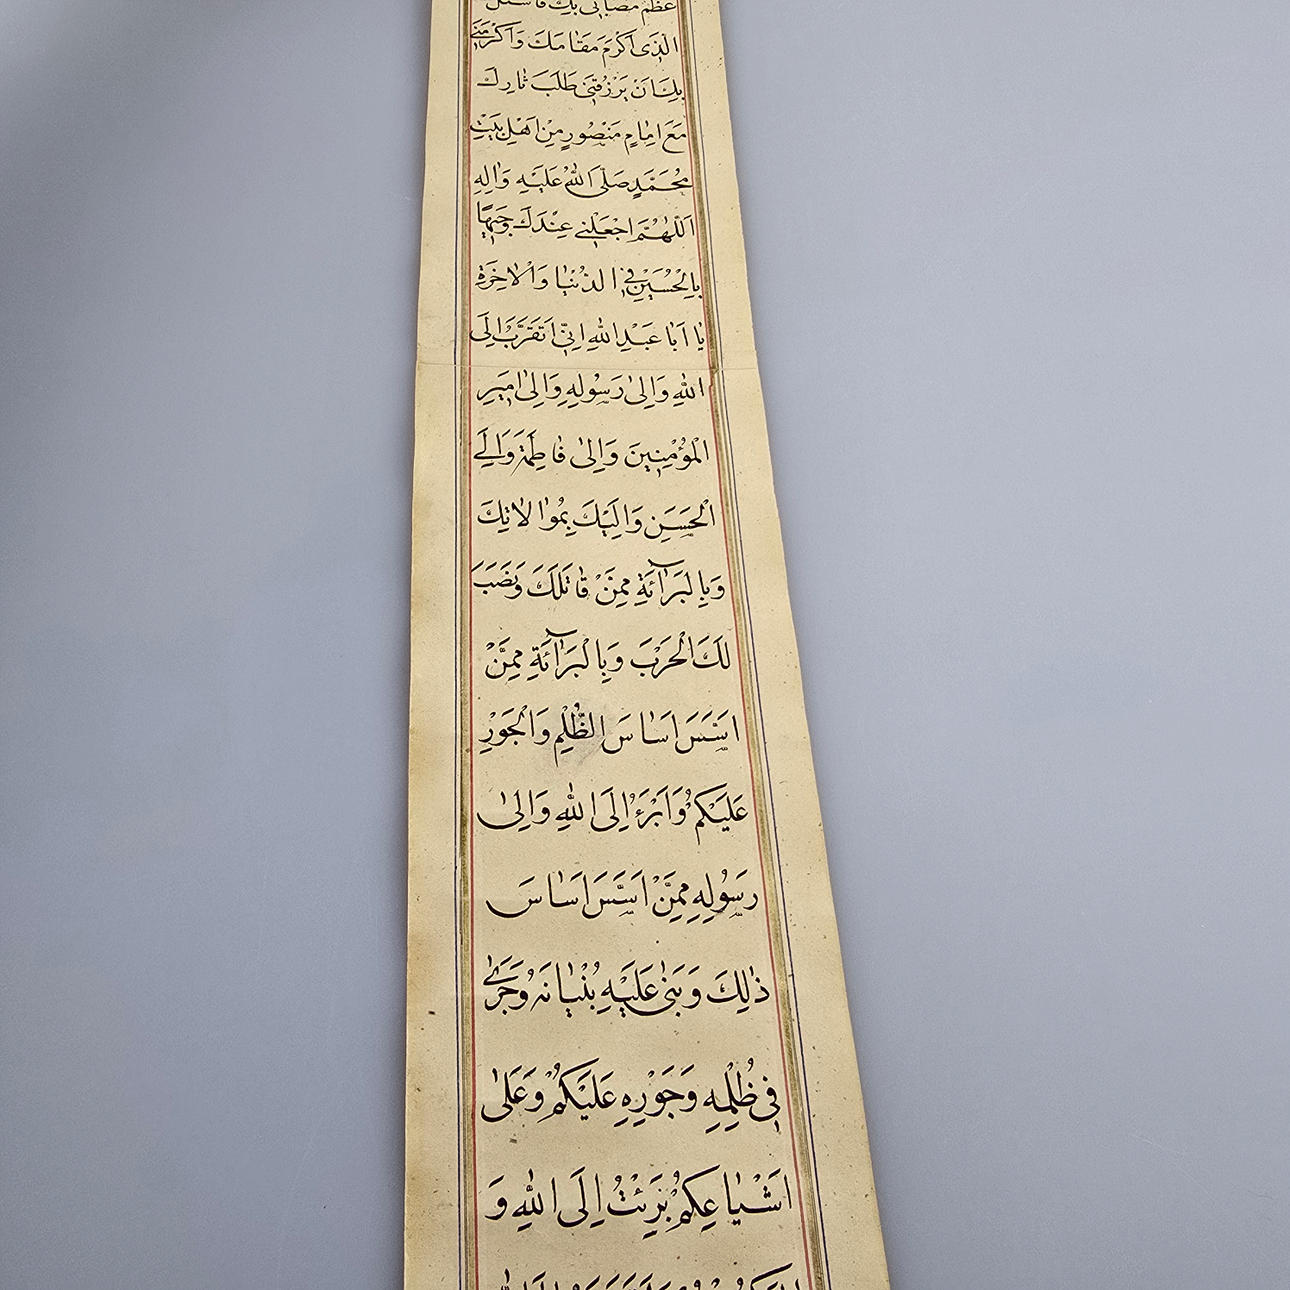 عَظُمَ مُصٰابى بِكَ فَاَسْئَلُ
الَّذى اَكْرَمَ مَقٰامَكَ وَاَكْرَمَنى
بِكَ اَنْ يَرْزُقَنى طَلَبَ ثٰارِكَ
مَعَ اِمٰامٍ مَنْصُورٍ مِنْ اَهْلِ بَيْتِ
مُحَمَّدٍ صَلَّى اللّٰهُ عَلَيْهِ وَاٰلِهِ
اَللّٰهُمَّ اجْعَلْنى عِنْدَكَ وَجيهًا
بِالْحُسَيْنِ فِى الدُّنْيٰا وَالْاٰخِرَةِ
يٰا اَبٰا عَبْدِ اللّٰهِ اِنّى اَتَقَرَّبُ اِلَى
اللّٰهِ وَاِلىٰ رَسُولِهِ وَاِلىٰ اَميرِ
الْمُؤْمِنينَ وَاِلىٰ فٰاطِمَةَ وَاِلَى
الْحَسَنِ وَاِلَيْكَ بِمُوٰالاٰتِكَ
وَبِالْبَرٰٓائَةِ مِمَّنْ قٰاتَلَكَ وَنَصَبَ
لَكَ الْحَرْبَ وَبِالْبَرٰٓائَةِ مِمَّنْ
اَسَّسَ اَسٰاسَ الظُّلْمِ وَالْجَوْرِ
عَلَيْكُمْ وَاَبْرَءُ اِلَى اللّٰهِ وَاِلىٰ
رَسُولِهِ مِمَّنْ اَسَّسَ اَسٰاسَ
ذٰلِكَ وَبَنىٰ عَلَيْهِ بُنْيٰانَهُ وَجَرىٰ
فى ظُلْمِهِ وَجَوْرِهِ عَلَيْكُمْ وَعَلىٰ
اَشْيٰاعِكُمْ بَرِئْتُ اِلَى اللّٰهِ وَ